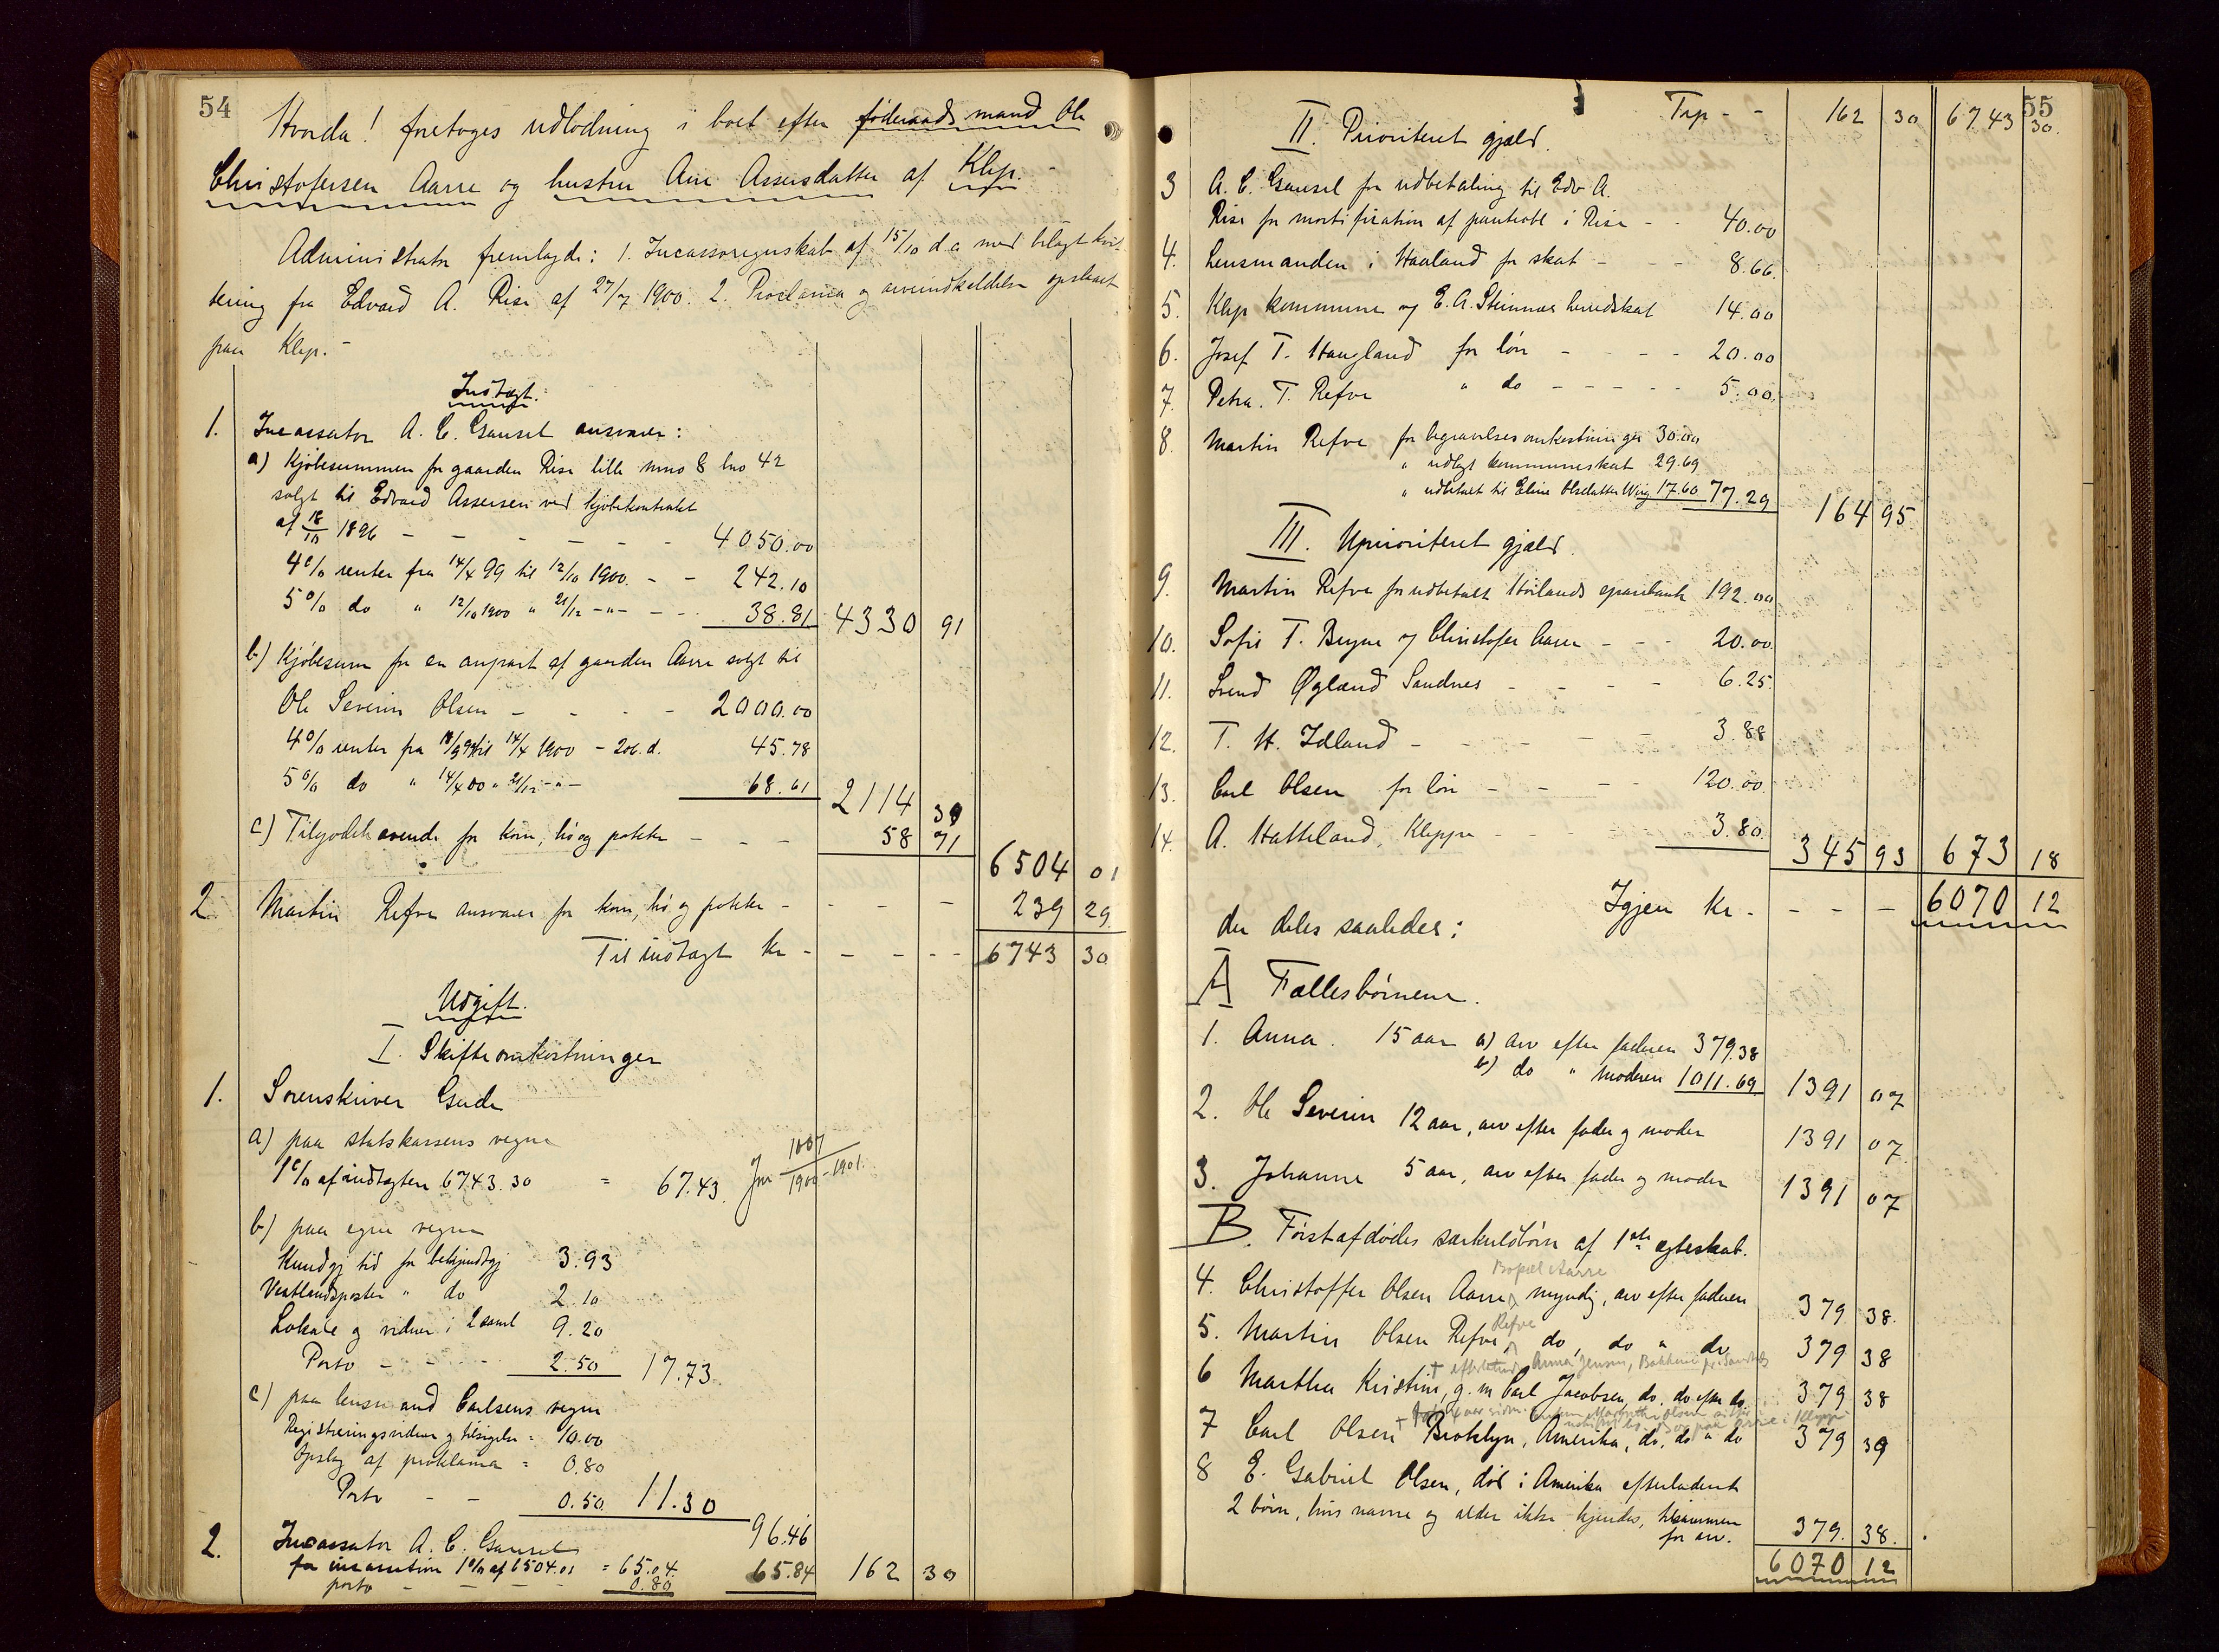 54
Hvorda! foretoges udlodning i boet efter føderaadsmand Ole
Christofersen Aarre og hustru Ane Assersdatter af Klep.-
Administrator fremlagde: 1. Incassoregnskab af 15/10 d.a. med bilagt kvit-
tering fra Edvard A. Rise af 27/7 1900. 2. Proclama og arveindkaldelse opslaaet
paa Klep.-
Indtægt:
1. Incassator A. C. Gausel ansvarer:
a) Kjøbesummen for gaarden Rise lille mno 8 lno 42
solgt til Edvard Assersen ved kjøbekontrakt
af 18/10 1896 - - - - - - 4050.00
4% renter fra 14/4 99 til 12/10 1900. - - 242.10
5% do " 12/10 1900 " 21/12 -"- - - 38.81 4330 91
b) Kjøbesum for en anpart af gaarden Aarre solgt til
Ole Severin Olsen - - - - 2000.00
4% renter fra 18/9 99 til 14/4 1900 - 206. d. 45.78
5% do " 14/4 00 " 21/12 -"- 68.61 2114 39
c) Tilgodehavende for korn, hø og poteter - - - 58 71
6504 01
2 Martin Refve ansvarer for korn, hø og poteter - - - - 239 29
Til indtægt kr - - - - - 6743 30
Udgift.
I. Skifteomkostninger
1. Sorenskriver Gude
a) paa statskassens vegne
1% af indtægten 6743.30 = 67.43. Jnr 1007/1900-1901.
b) paa egne vegne
Kundgj tid for bekjendtgj 3.93
Vestlandsposten " do 2.10
Lokale og vidner i 2 saml 9.20
Porto - - - - 2.50 17.73
c) paa lensmand Carlsens vegne
Registreringsvidner og tilsigelse = 10.00
Opslag af proklama = 0.80
Porto - - 0.50 11.30
96.46
2. Incassator A. C. Gausel
for incasation 1% af 6504.01 = 65.04.
porto - - - - 0.80 65.84 162 30
55
Trp - - 162 30 6743 30.
II. Prioriteret gjæld.
3 A. C. Gausel for udbetaling til Edv A.
Rise for mortifiration af panteobl i Rise - - 40.00
4. Lensmanden i Haaland for skat - - - 8.66.
5. Klep kommune og E. A. Steinnes herredskat 14.00
6. Josef T. Haugland for løn - - - - 20.00
7. Petra. T. Refve " do - - - - - 5.00.
8. Martin Refve for begravelsesomkostninger 30.00
" udlagt kommuneskat 29.69
" udbetalt til Eline Olsdatter Wiig 17.60 77.29 164 95
III. Uprioriteret gjæld.
9. Martin Refve for udbetalt Høilands sparebank 192.00
10. Sofie T. Bryne og Christofer Aarre - - - 20.00.
11. Svend Øgland Sandnes - - - - 6.25.
12. T. H. Idland - - - - - 3.88
13. Carl Olsen for løn - - - - 120.00.
14. A. Hatteland, Kleppe - - - 3.80 345 93 673 18
Igjen kr - - - - 6070 12
der deles saaledes:
A Fællesbørnene.
1. Anna. 15 aar a) arv efter faderen 379.38
b) do " moderen 1011.69 1391 07
2. Ole Severin 12 aar, arv efter fader og moder 1391 07.
3. Johanne 5 aar, arv efter fader og moder 1391 07
B. Førstafdødes særkuldbørn af 1ste ægteskab.
Bopæl Aarre
4. Christoffer Olsen Aarre, myndig, arv efter faderen 379 38.
Refve
5. Martin Olsen Refve, do, do " do 379 38
† efterladende Anna Jensen,
6 Martha Kristine, g. m. Carl Jacobsen, do. do efter do. 379 38
7 Carl Olsen † Broklyn, Amerika, do. do " do 379 39
8 E. Gabriel Olsen, død i Amerika efterladende
2 børn, hvis navne og alder ikke kjendes, tilsammen
for arv. 379. 38.
6070 12